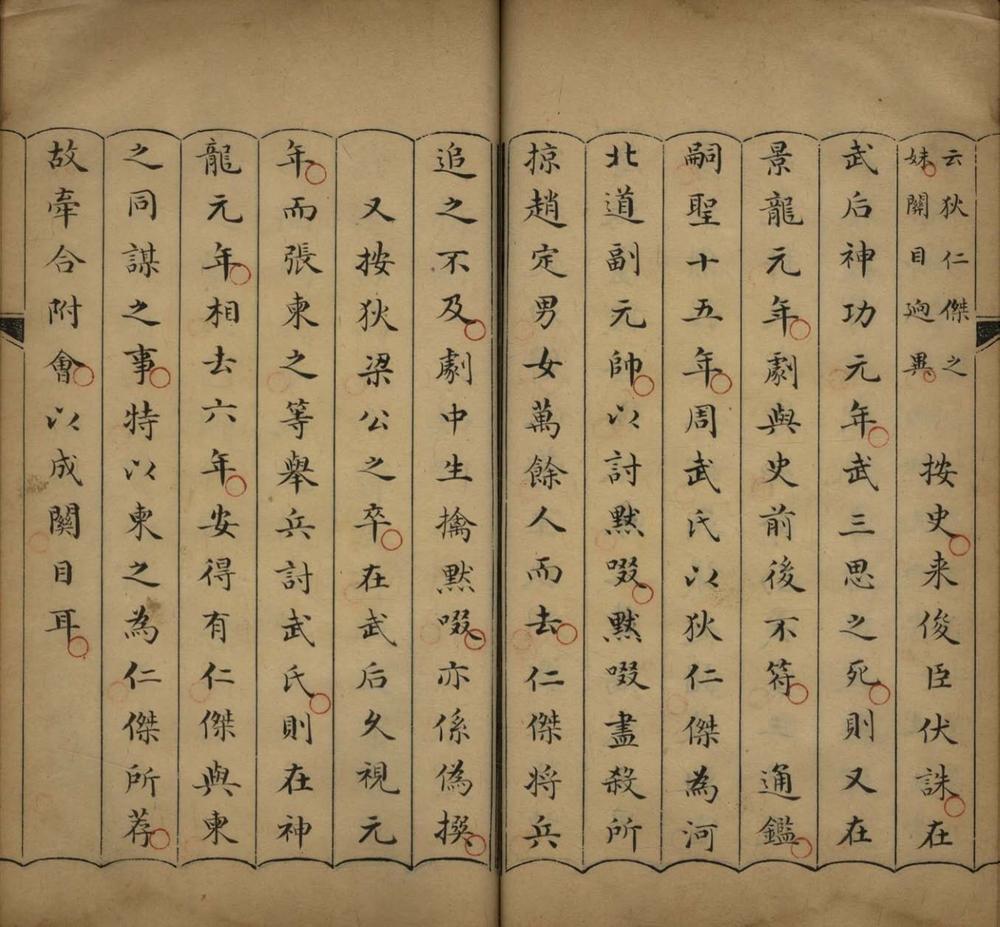 云狄仁傑之
妹關目逈異
按史来俊臣伏誅在
武后神功元年武三思之死則又在
景龍元年劇與史前後不符　通鑑
嗣聖十五年周武氏以狄仁傑為河
北道副元帥以討黙啜黙啜盡殺所
掠趙定男女萬餘人而去仁傑将兵
追之不及劇中生擒黙啜亦係偽撰
又按狄梁公之卒在武后久視元
年而張柬之等舉兵討武氏則在神
龍元年相去六年安得有仁傑與柬
之同謀之事特以柬之為仁傑所荐
故牽合附會以成關目耳